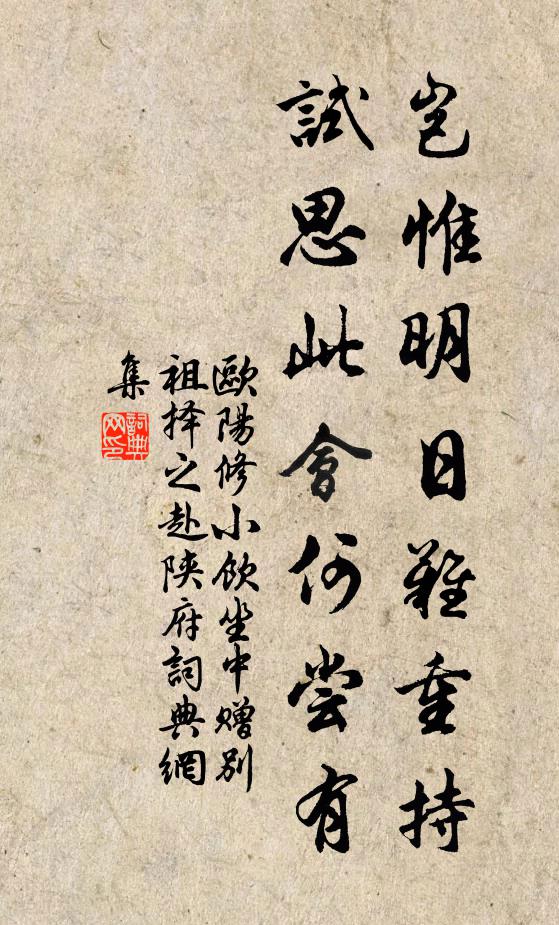 岂惟明日難重持
試思此會何嘗有
歐陽修小飲坐中赠别
祖择之赴陕府詞典網
集
詞典
网印